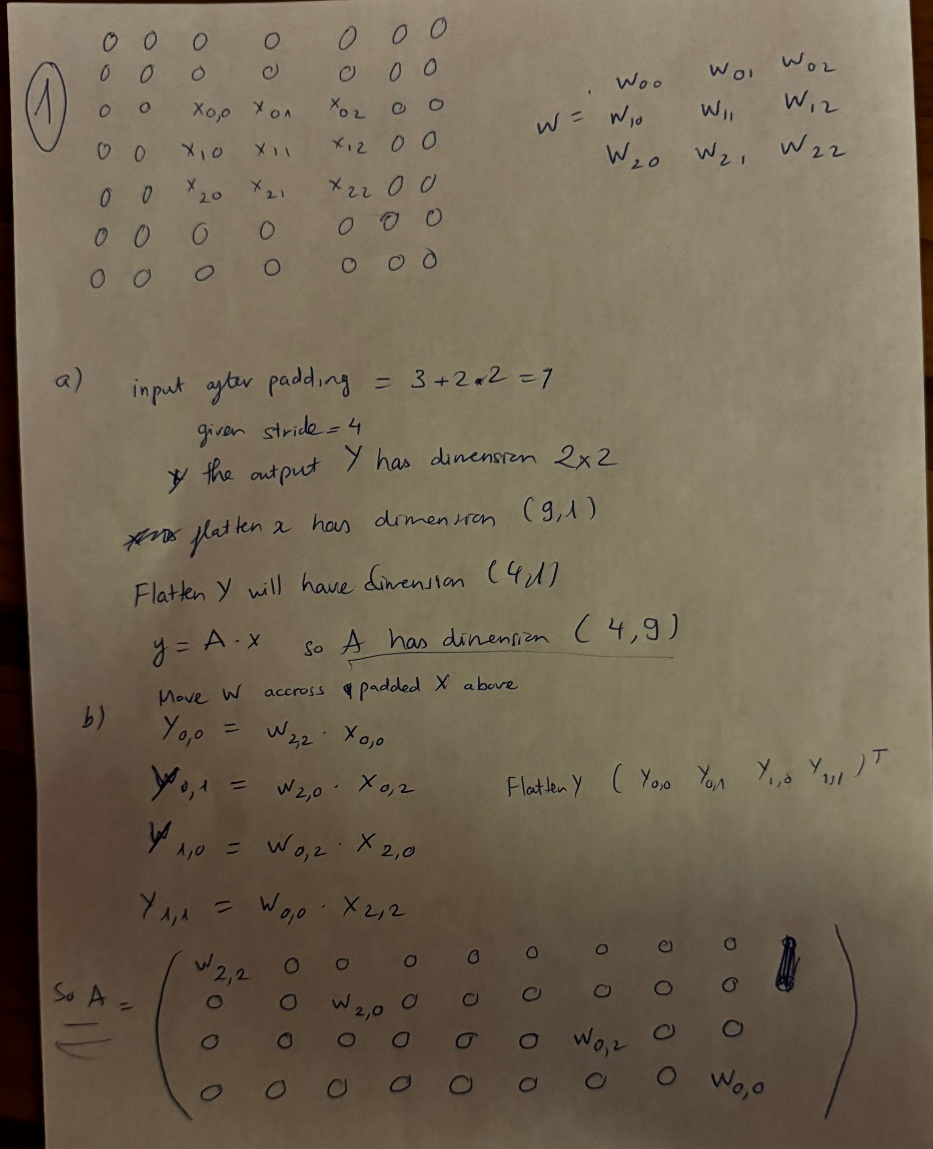 ①
0 0 0 0 0 0 0
0 0 0 0 0 0 0
0 0 x0,0 x01 x02 0 0
0 0 x10 x11 x12 0 0
0 0 x20 x21 x22 0 0
0 0 0 0 0 0 0
0 0 0 0 0 0 0
W00 W01 W02
W = W10 W11 W12
W20 W21 W22
a) input after padding = 3+2*2 = 7
given stride = 4
the output Y has dimension 2x2
flatten x has dimension (9,1)
Flatten Y will have dimension (4,1)
y = A · x so A has dimension (4,9)
Move W accross padded X above
b)
Y0,0 = W2,2 · X0,0
Y0,1 = W2,0 · X0,2
Flatten Y (Y0,0 Y0,1 Y1,0 Y1,1)T
Y1,0 = W0,2 · X2,0
Y1,1 = W0,0 · X2,2
So A = ( W2,2 0 0 0 0 0 0 0 0
0 0 W2,0 0 0 0 0 0 0
0 0 0 0 0 0 W0,2 0 0
0 0 0 0 0 0 0 0 W0,0 )